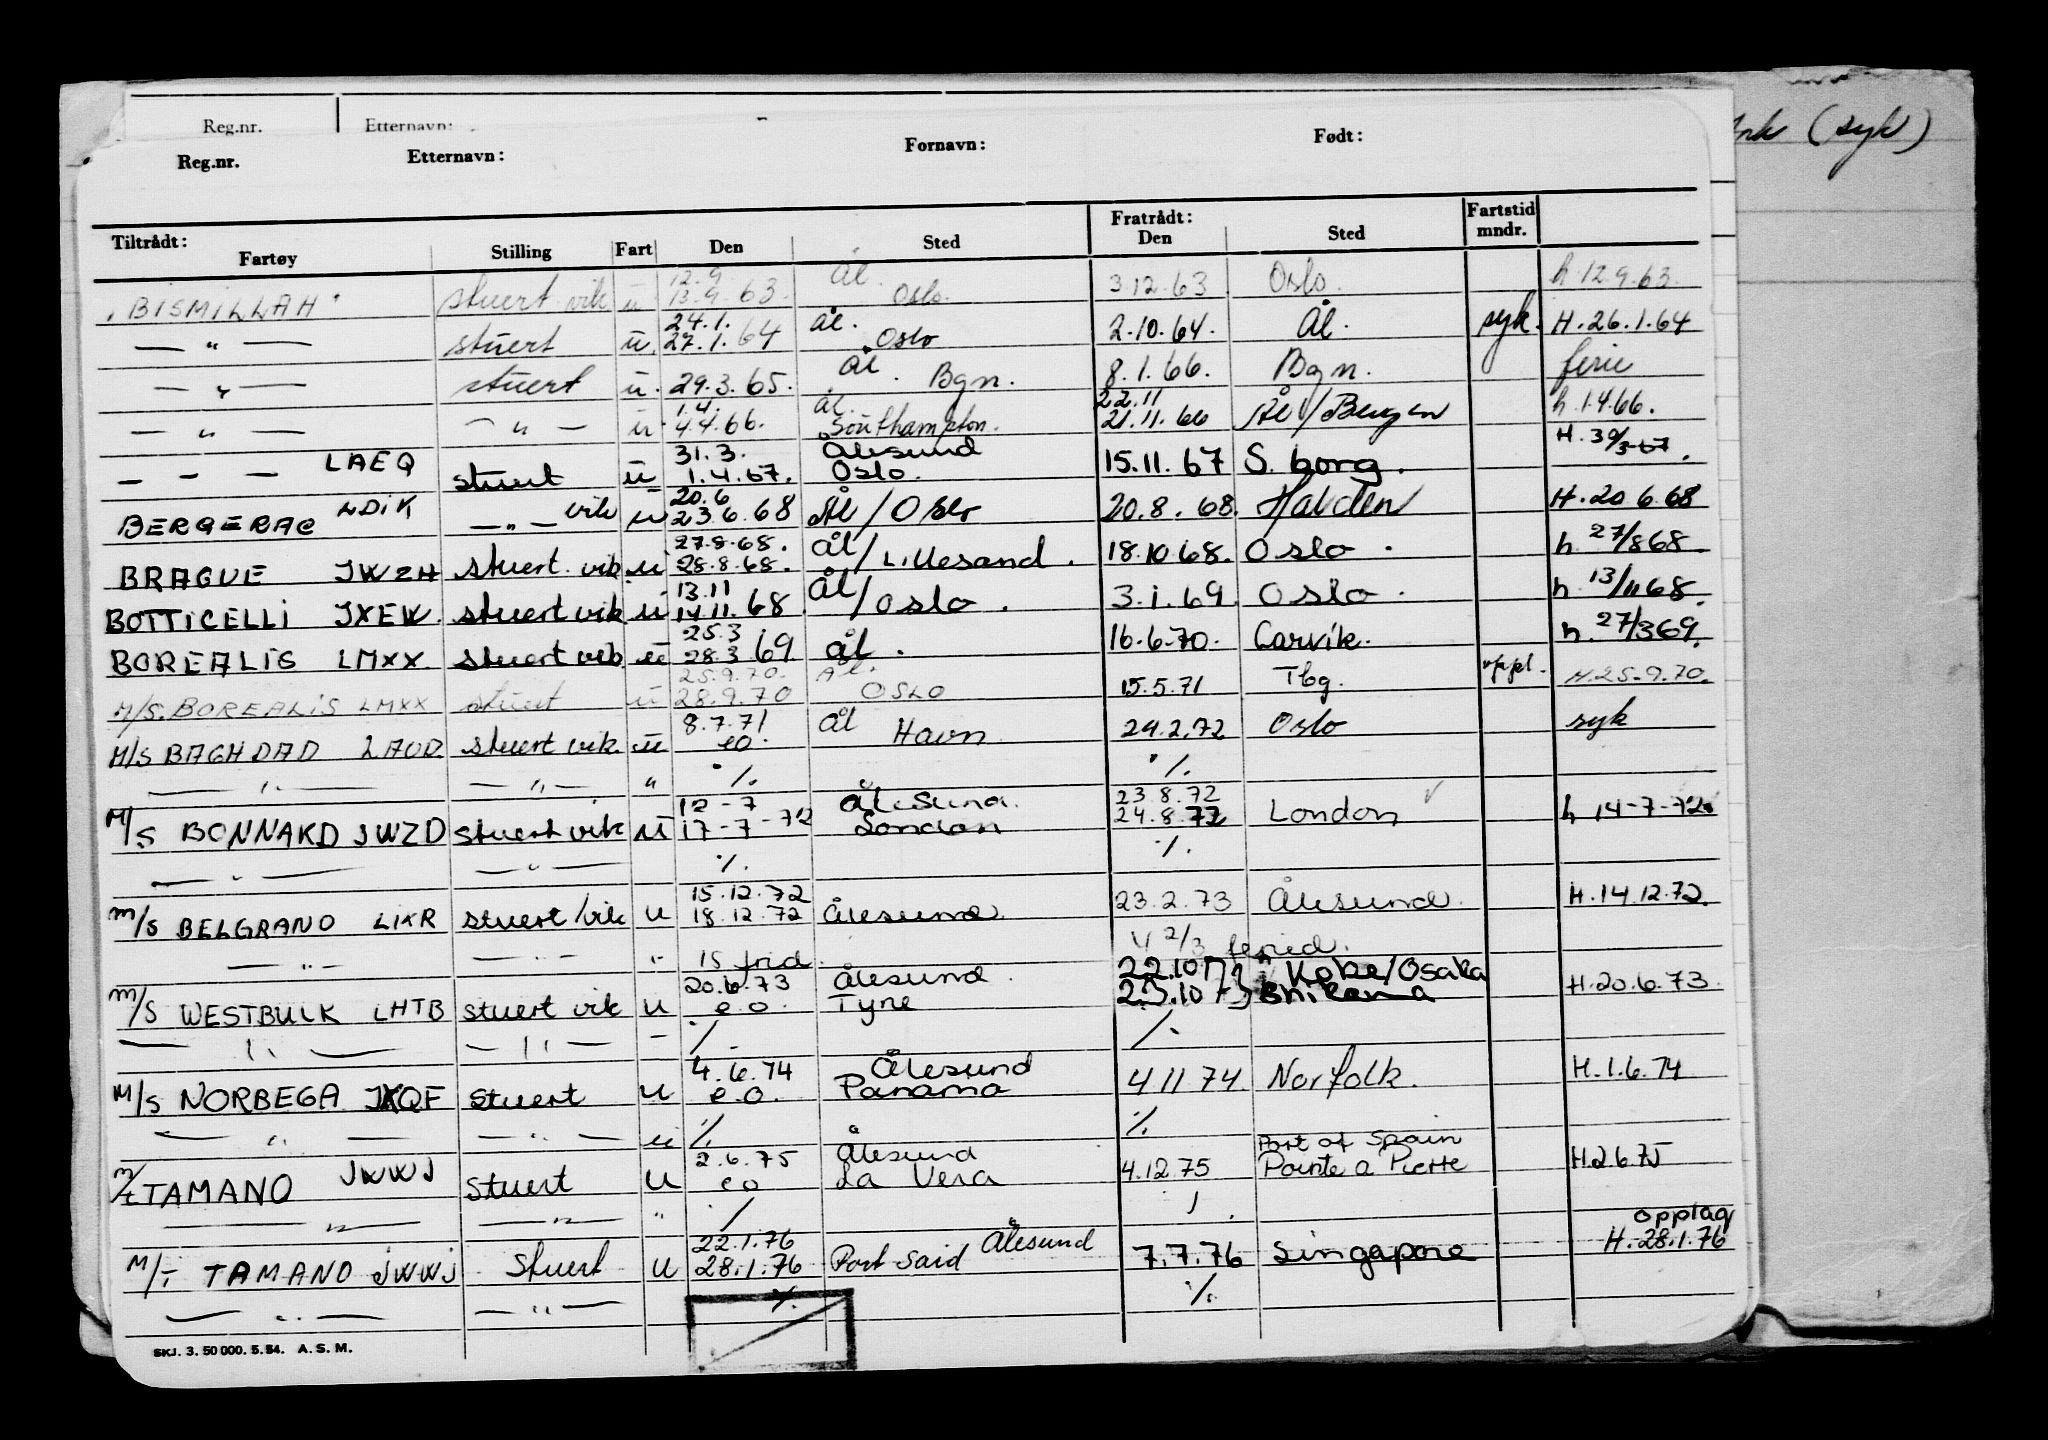 (syk)
Reg.nr. Etternavn:
Reg.nr. Etternavn: Fornavn: Født:
Tiltrådt: Fratrådt: Fartstid
Fartøy Stilling Fart Den Sted Den Sted mndr.
12.9 Ål.
"BISMILLAH" stuert vik u 13.9.63. Oslo. 3.12.63 Oslo. h.12.9.63.
24.1. Ål.
— " — stuert u. 27.1.64 Oslo 2.10.64. Ål. syk. H.26.1.64
— " — stuert u. 29.3.65. Ål. Bgn. 8.1.66. Bgn. ferie
1.4. Ål. 22.11
— " — — " — u 4.4.66. Southampton. 21.11.66 Ål/Bergen h.1.4.66.
31.3. Ålesund
— — — LAEQ stuert u 1.4.67. Oslo. 15.11.67 S.borg. H.30/3-67.
20.6
BERGERAC LDIK — " — vik u 23.6.68 Ål/Oslo 20.8.68. Halden H.20.6.68
27.8.68.
BRAGUE JWZH stuert vik. u 28.8.68. Ål/Lillesand. 18.10.68. Oslo. h.27/868.
13.11
BOTTICELLI JXEW. stuert vik u 14.11.68. Ål/Oslo. 3.1.69. Oslo. h.13/1168.
25.3
BOREALIS LMXX stuert vik u 28.3 69 Ål. 16.6.70. Carvik. h.27/369.
25.9.70. Ål.
M/S. BOREALIS LMXX stuert u 28.9.70 OSLO 15.5.71 Tbg. oppl. H.25.9.70.
8.7.71 Ål
M/S BAGHDAD LAUD stuert vik. u eo. Havn 29.2.72 Oslo syk
— " — — " — " ·/. ·/.
12-7 Ålesund. 23.8.72
M/S BONNARD JWZD stuert vik u 17-7-72 London 24.8.72 London h 14-7-72.
— " — — " — ·/. ·/.
15.12.72
M/S BELGRANO LIKR stuert/vik u 18.12.72 Ålesund. 23.2.73 Ålesund. H.14.12.72.
— " — — " — " 15 frid. 4 2/3 feried.
20.6.73 Ålesund. 22.10.73 Kobe/Osaka
M/S WESTBULK LHTB stuert vik u e.o. Tyne 23.10.73 H.20.6.73
— " — — " — — ·/. ·/.
4.6.74 Ålesund
M/S NORBEGA JXQF stuert u e.o. Panama 4 11 74 Norfolk. H.1.6.74
— " — — " — u ·/. ·/.
2.6.75 Ålesund Port of Spain
M/T TAMANO JWWJ stuert u eo La Vera 4.12.75 Pointe a Pierre H.2.6.75
— " — — " — " ·/. / .
22.1.76 Ålesund opplag
M/T TAMANO JWWJ stuert u 28.1.76 Port Said 7.7.76 Singapore H.28.1.76
— " — — " — ·/. ·/.
SKJ. 3. 50 000. 5. 54. A. S. M.